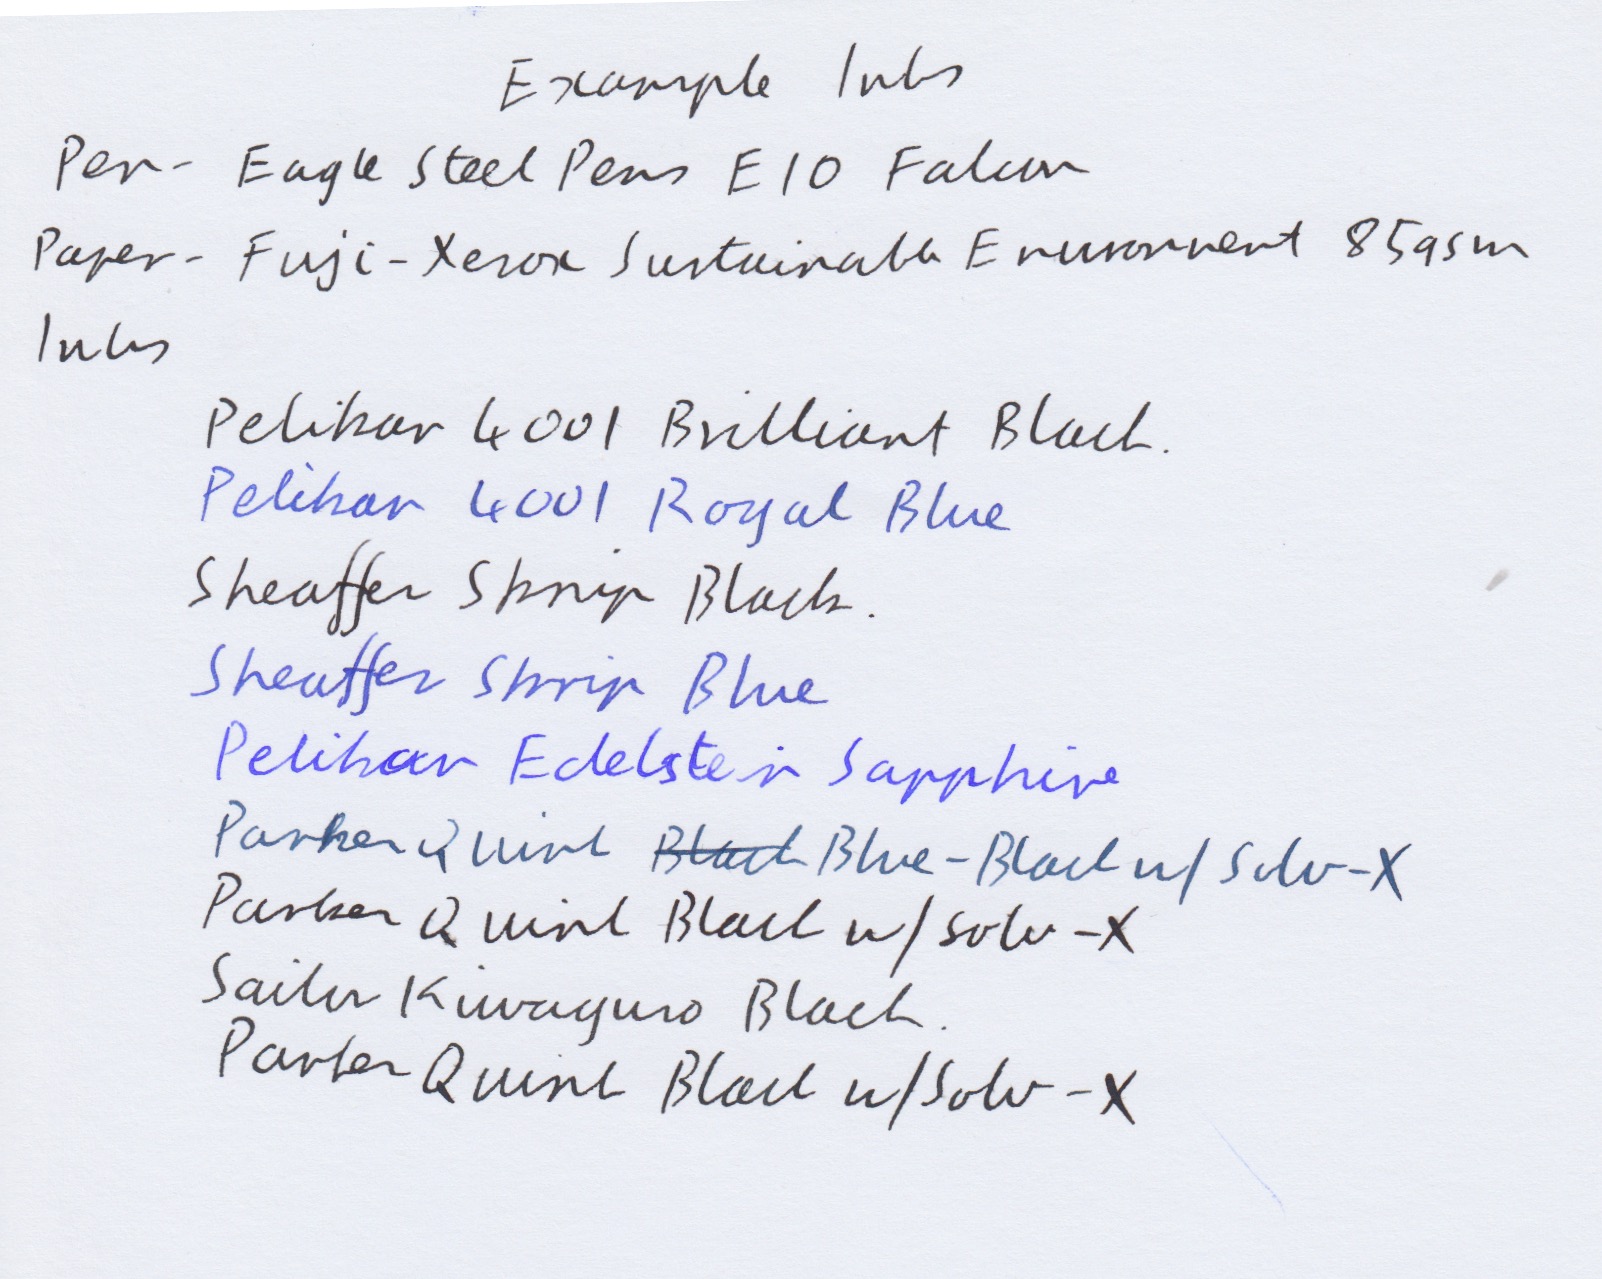 Example Inks
Pen- Eagle Steel Pens E10 Falcon
Paper- Fuji-Xerox Sustainable Environment 85gsm
Inks
Pelikan 4001 Brilliant Black.
Pelikan 4001 Royal Blue
Sheaffer Skrip Black.
Sheaffer Skrip Blue
Pelikan Edelstein Sapphire
Parker Quink Black Blue-Black w/ Solv-X
Parker Quink Black w/ Solv-X
Sailor Kiwaguro Black.
Parker Quink Black w/ Solv-X